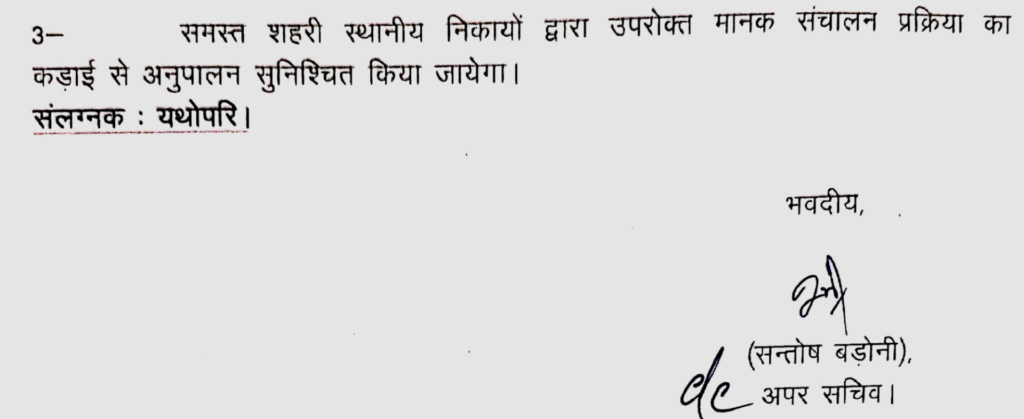 3— समस्त शहरी स्थानीय निकायों द्वारा उपरोक्त मानक संचालन प्रक्रिया का
कड़ाई से अनुपालन सुनिश्चित किया जायेगा।
संलग्नक : यथोपरि।
भवदीय,
(सन्तोष बड़ोनी),
अपर सचिव।